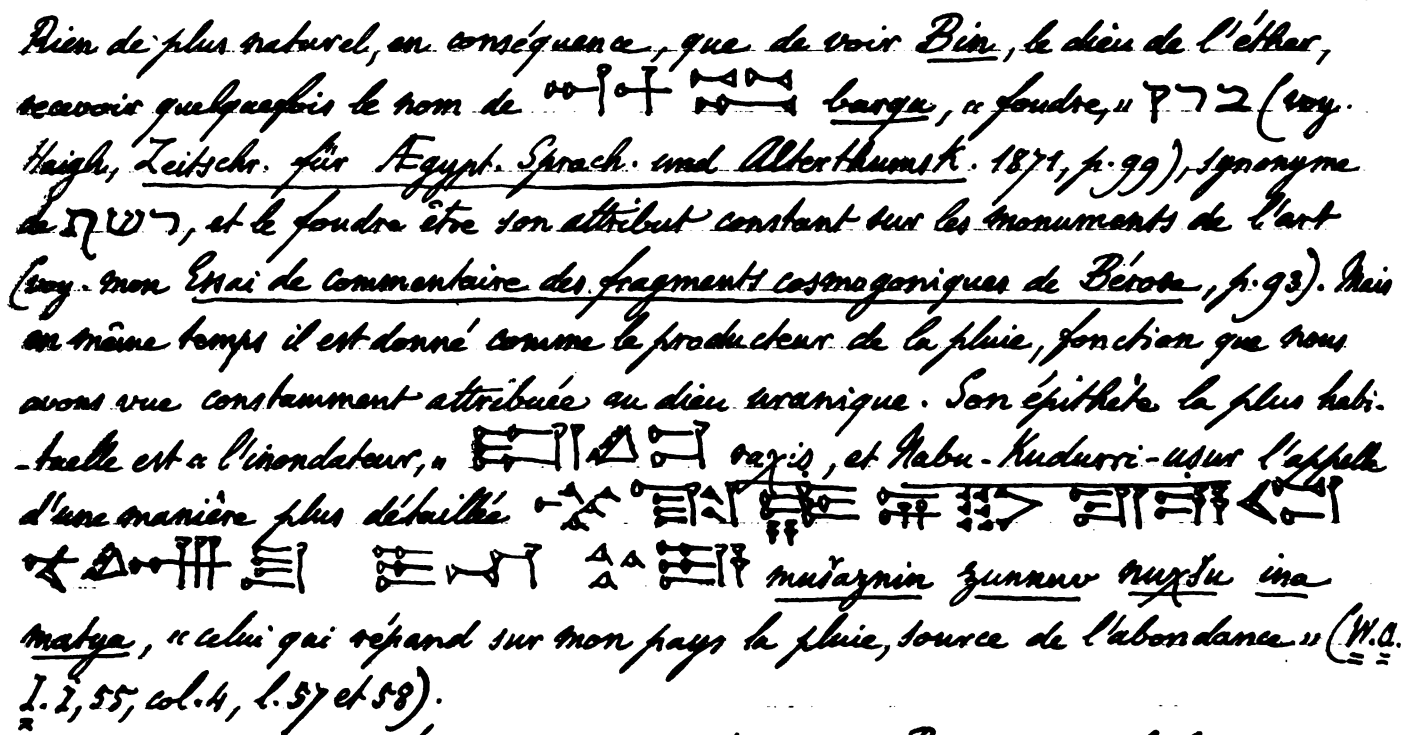 Rien de plus naturel, en conséquence, que de voir Bin, le dieu de l'éther,
recevoir quelquefois le nom de barqu, « foudre, » ברק (voy.
Haigh, Zeitschr. für Ægypt. Sprach. und Alterthumsk. 1871, p. 99), synonyme
de רשף, et le foudre être son attribut constant sur les monuments de l'art
(voy. mon Essai de commentaire des fragments cosmogoniques de Bérose, p. 93). Mais
en même temps il est donné comme le producteur de la pluie, fonction que nous
avons vue constamment attribuée au dieu uranique. Son épithète la plus habi-
-tuelle est « l'inondateur, » raχiṣ, et Nabu-Kudurri-uṣur l'appelle
d'une manière plus détaillée
mušaznin zunnuv nuχšu ina
matya, « celui qui répand sur mon pays la pluie, source de l'abondance » (W.A.
I. I, 55, col. 4, l. 57 et 58).